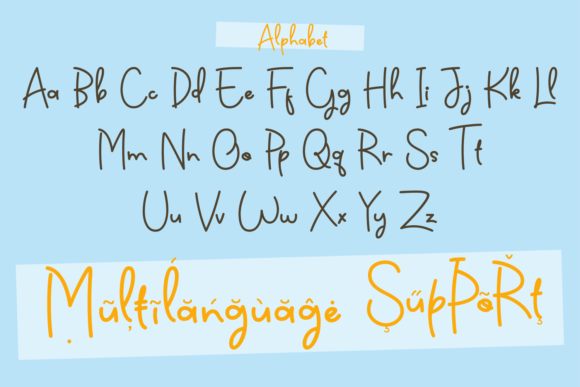 Alphabet
Aa Bb Cc Dd Ee Ff Gg Hh Ii Jj Kk Ll
Mm Nn Oo Pp Qq Rr Ss Tt
Uu Vv Ww Xx Yy Zz
Ṃũļŧĩĺăńğùăĝė ŞűpÞõŘţ